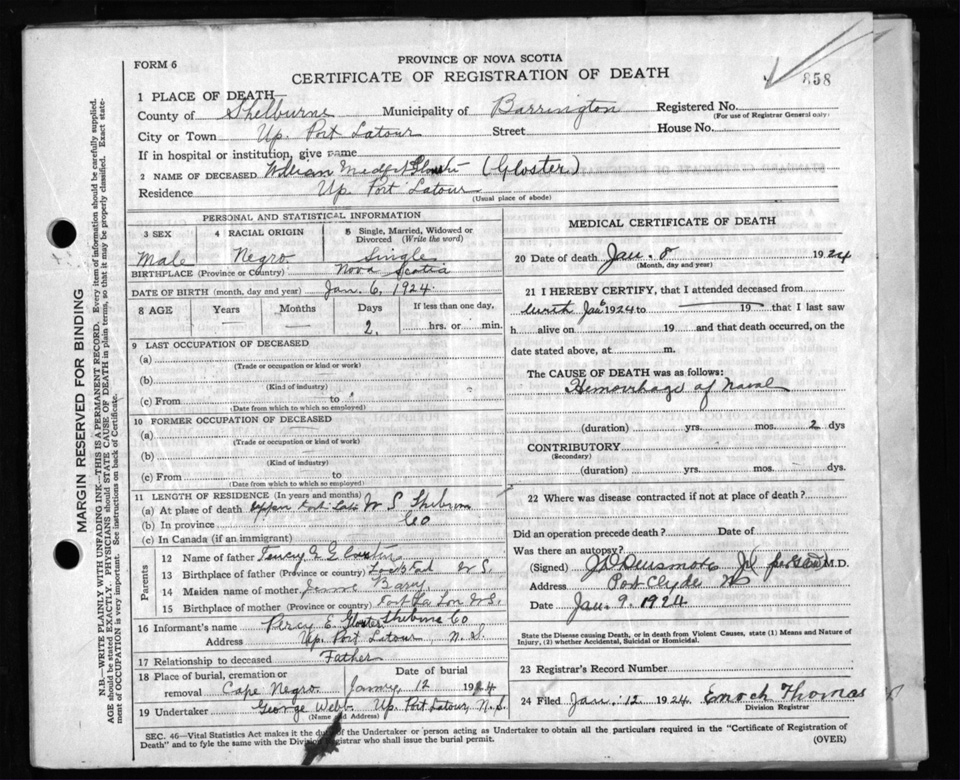 FORM 6
PROVINCE OF NOVA SCOTIA
CERTIFICATE OF REGISTRATION OF DEATH
858
1 PLACE OF DEATH—
County of Shelburne Municipality of Barrington Registered No.
(For use of Registrar General only)
City or Town Up. Port Latour Street House No.
If in hospital or institution, give name
2 NAME OF DECEASED William (Gloster)
Residence Up. Port Latour
(Usual place of abode)
PERSONAL AND STATISTICAL INFORMATION
3 SEX 4 RACIAL ORIGIN 5 Single, Married, Widowed or Divorced (Write the word)
Male Negro Single
BIRTHPLACE (Province or Country) Nova Scotia
DATE OF BIRTH (month, day and year) Jan. 6, 1924.
8 AGE Years Months Days If less than one day,
2. hrs. or min.
9 LAST OCCUPATION OF DECEASED
(a)
(Trade or occupation or kind or work)
(b)
(Kind of industry)
(c) From to
(Date from which to which so employed)
10 FORMER OCCUPATION OF DECEASED
(a)
(Trade or occupation or kind of work)
(b)
(Kind of industry)
(c) From to
(Date from which to which so employed)
11 LENGTH OF RESIDENCE (In years and months)
(a) At place of death
(b) In province Co
(c) In Canada (if an immigrant)
Parents
12 Name of father
13 Birthplace of father (Province or country) N S.
14 Maiden name of mother
15 Birthplace of mother (Province or country) N.S.
16 Informant's name Percy E. Gloster Shelburne Co
Address Up. Port Latour N. S.
17 Relationship to deceased Father
18 Place of burial, cremation or removal Cape Negro Date of burial 12 1924
19 Undertaker George Webb Up. Port Latour, N.S.
(Name and Address)
MEDICAL CERTIFICATE OF DEATH
20 Date of death Jan. 8 1924
(Month, day and year)
21 I HEREBY CERTIFY, that I attended deceased from
birth Jan 6 1924 to 19 that I last saw
h alive on 19 and that death occurred, on the
date stated above, at m.
The CAUSE OF DEATH was as follows:
Hemorrhage of Naval
(duration) yrs. mos. 2 dys
CONTRIBUTORY
(Secondary)
(duration) yrs. mos. dys.
22 Where was disease contracted if not at place of death?
Did an operation precede death? Date of
Was there an autopsy?
(Signed) M.D.
Address Port Clyde NS
Date Jan. 9. 1924
State the Disease causing Death, or in death from Violent Causes, state (1) Means and Nature of
Injury, (2) whether Accidental, Suicidal or Homicidal.
23 Registrar's Record Number
24 Filed Jan. 12 1924 Enoch Thomas
Division Registrar
SEC. 46—Vital Statistics Act makes it the duty of the Undertaker or person acting as Undertaker to obtain all the particulars required in the "Certificate of Registration of
Death" and to fyle the same with the Division Registrar who shall issue the burial permit.
(OVER)
MARGIN RESERVED FOR BINDING
N.B.—WRITE PLAINLY WITH UNFADING INK—THIS IS A PERMANENT RECORD. Every item of information should be carefully supplied.
AGE should be stated EXACTLY. PHYSICIANS should STATE CAUSE OF DEATH in plain terms, so that it may be properly classified. Exact statement
of OCCUPATION is very important. See instructions on back of Certificate.